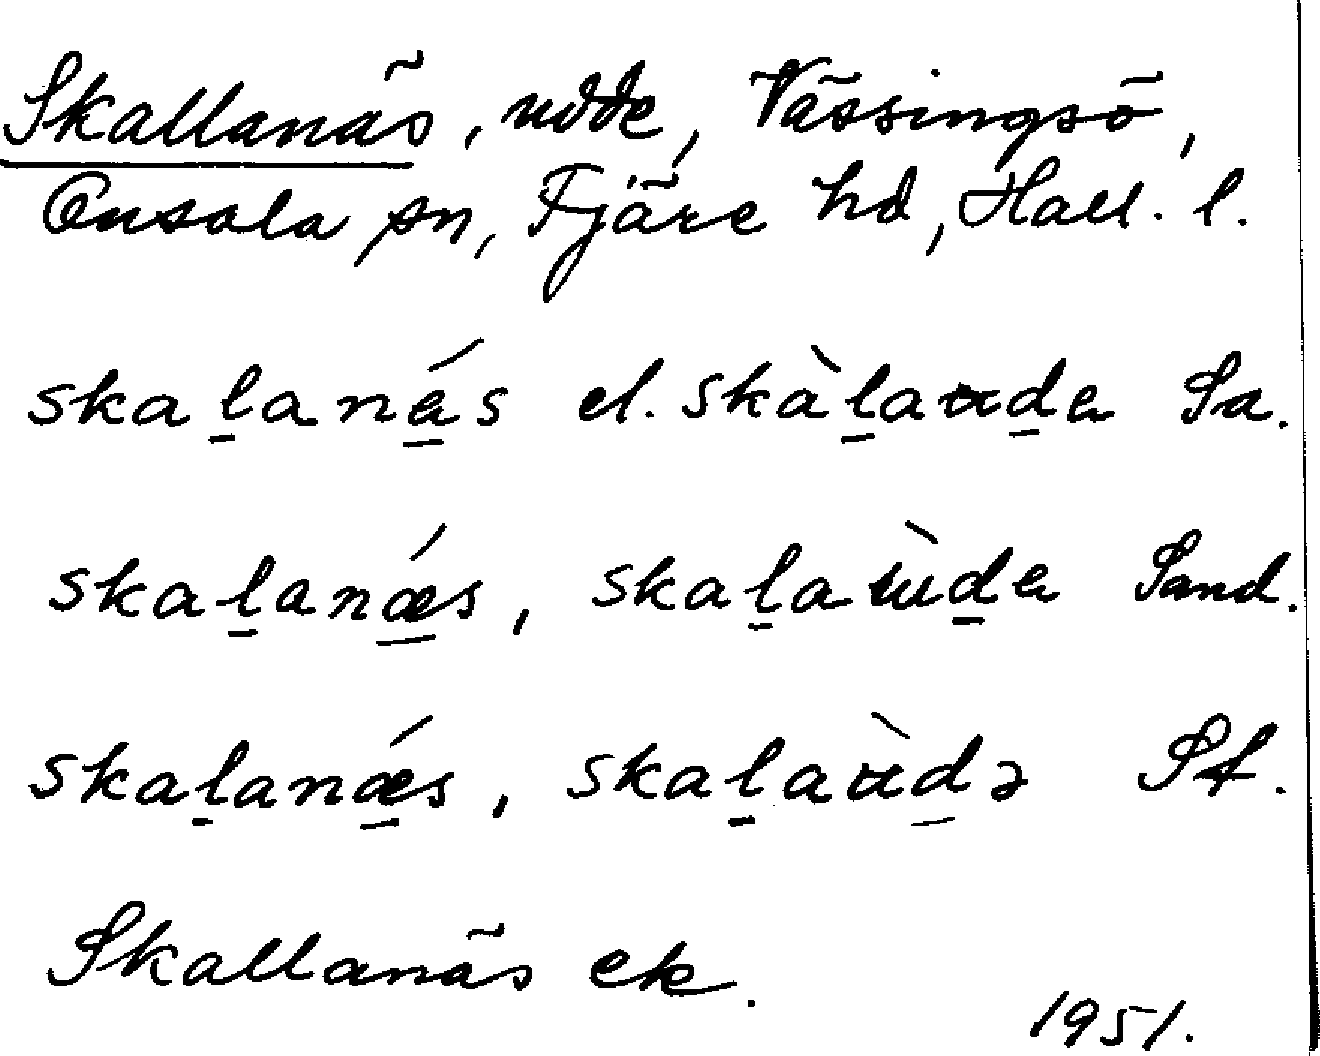 Skallanäs, udde, Vässingsö,
Onsala sn, Fjäre hd, Hall. l.
skaḻanás el. skàḻauḏa Sa.
skaḻanǽs, skaḻaùḏa Sand.
skaḻanǽs, skaḻaùḏə Sf.
Skallanäs ek.
1951.